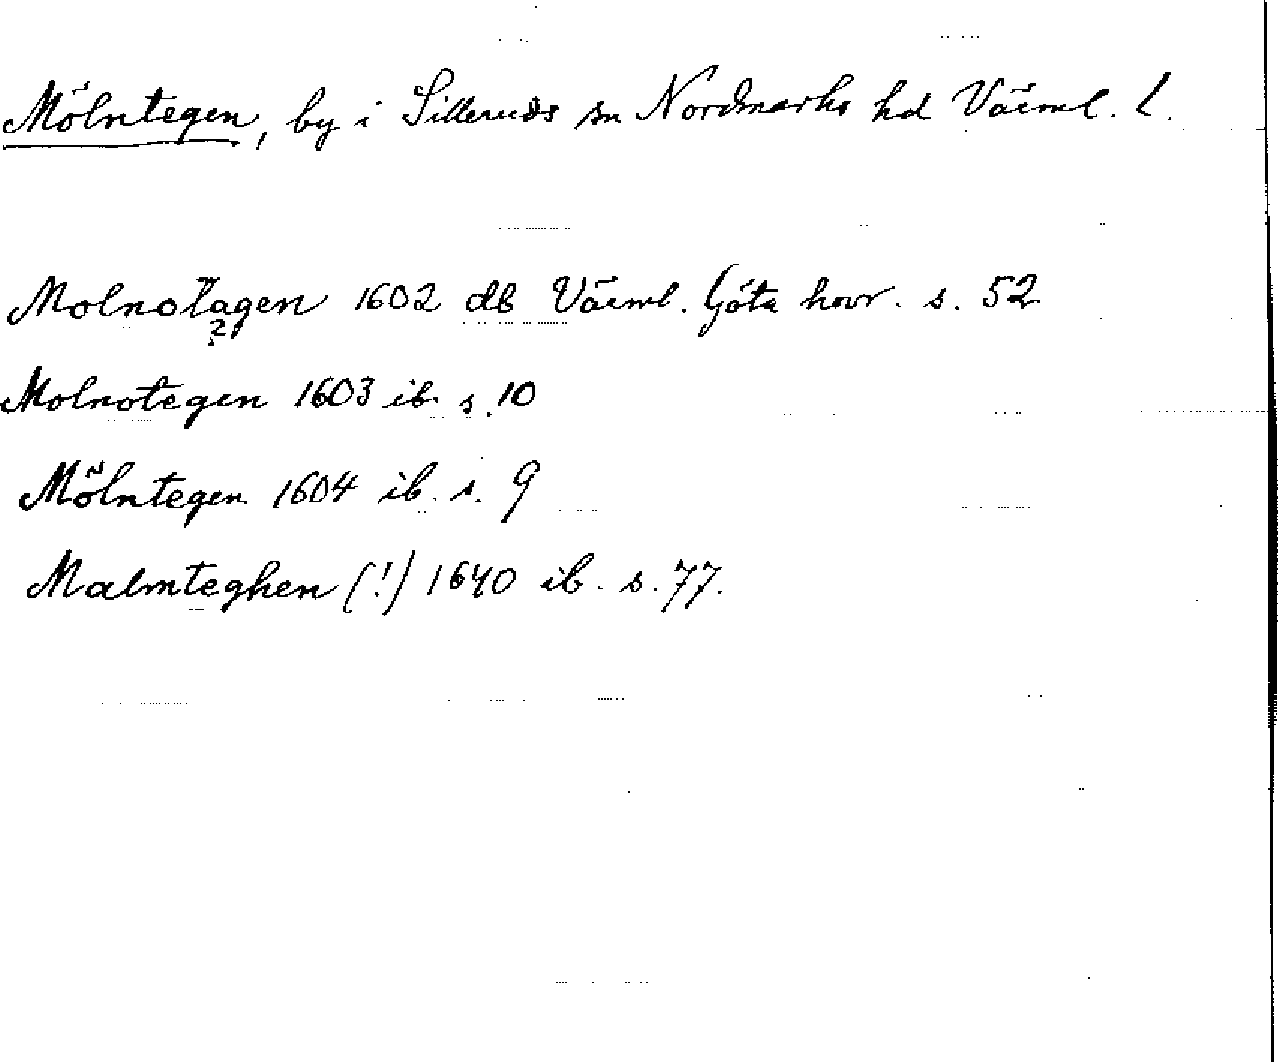 Mölntegen, by i Silleruds sn Nordmarks hd Värml. l.
Molnotagen 1602 db Värml. Göta hovr. s. 52
?
Molnotegen 1603 ib. s. 10
Mölntegen 1604 ib. s. 9
Malmteghen (!) 1640 ib. s. 77.